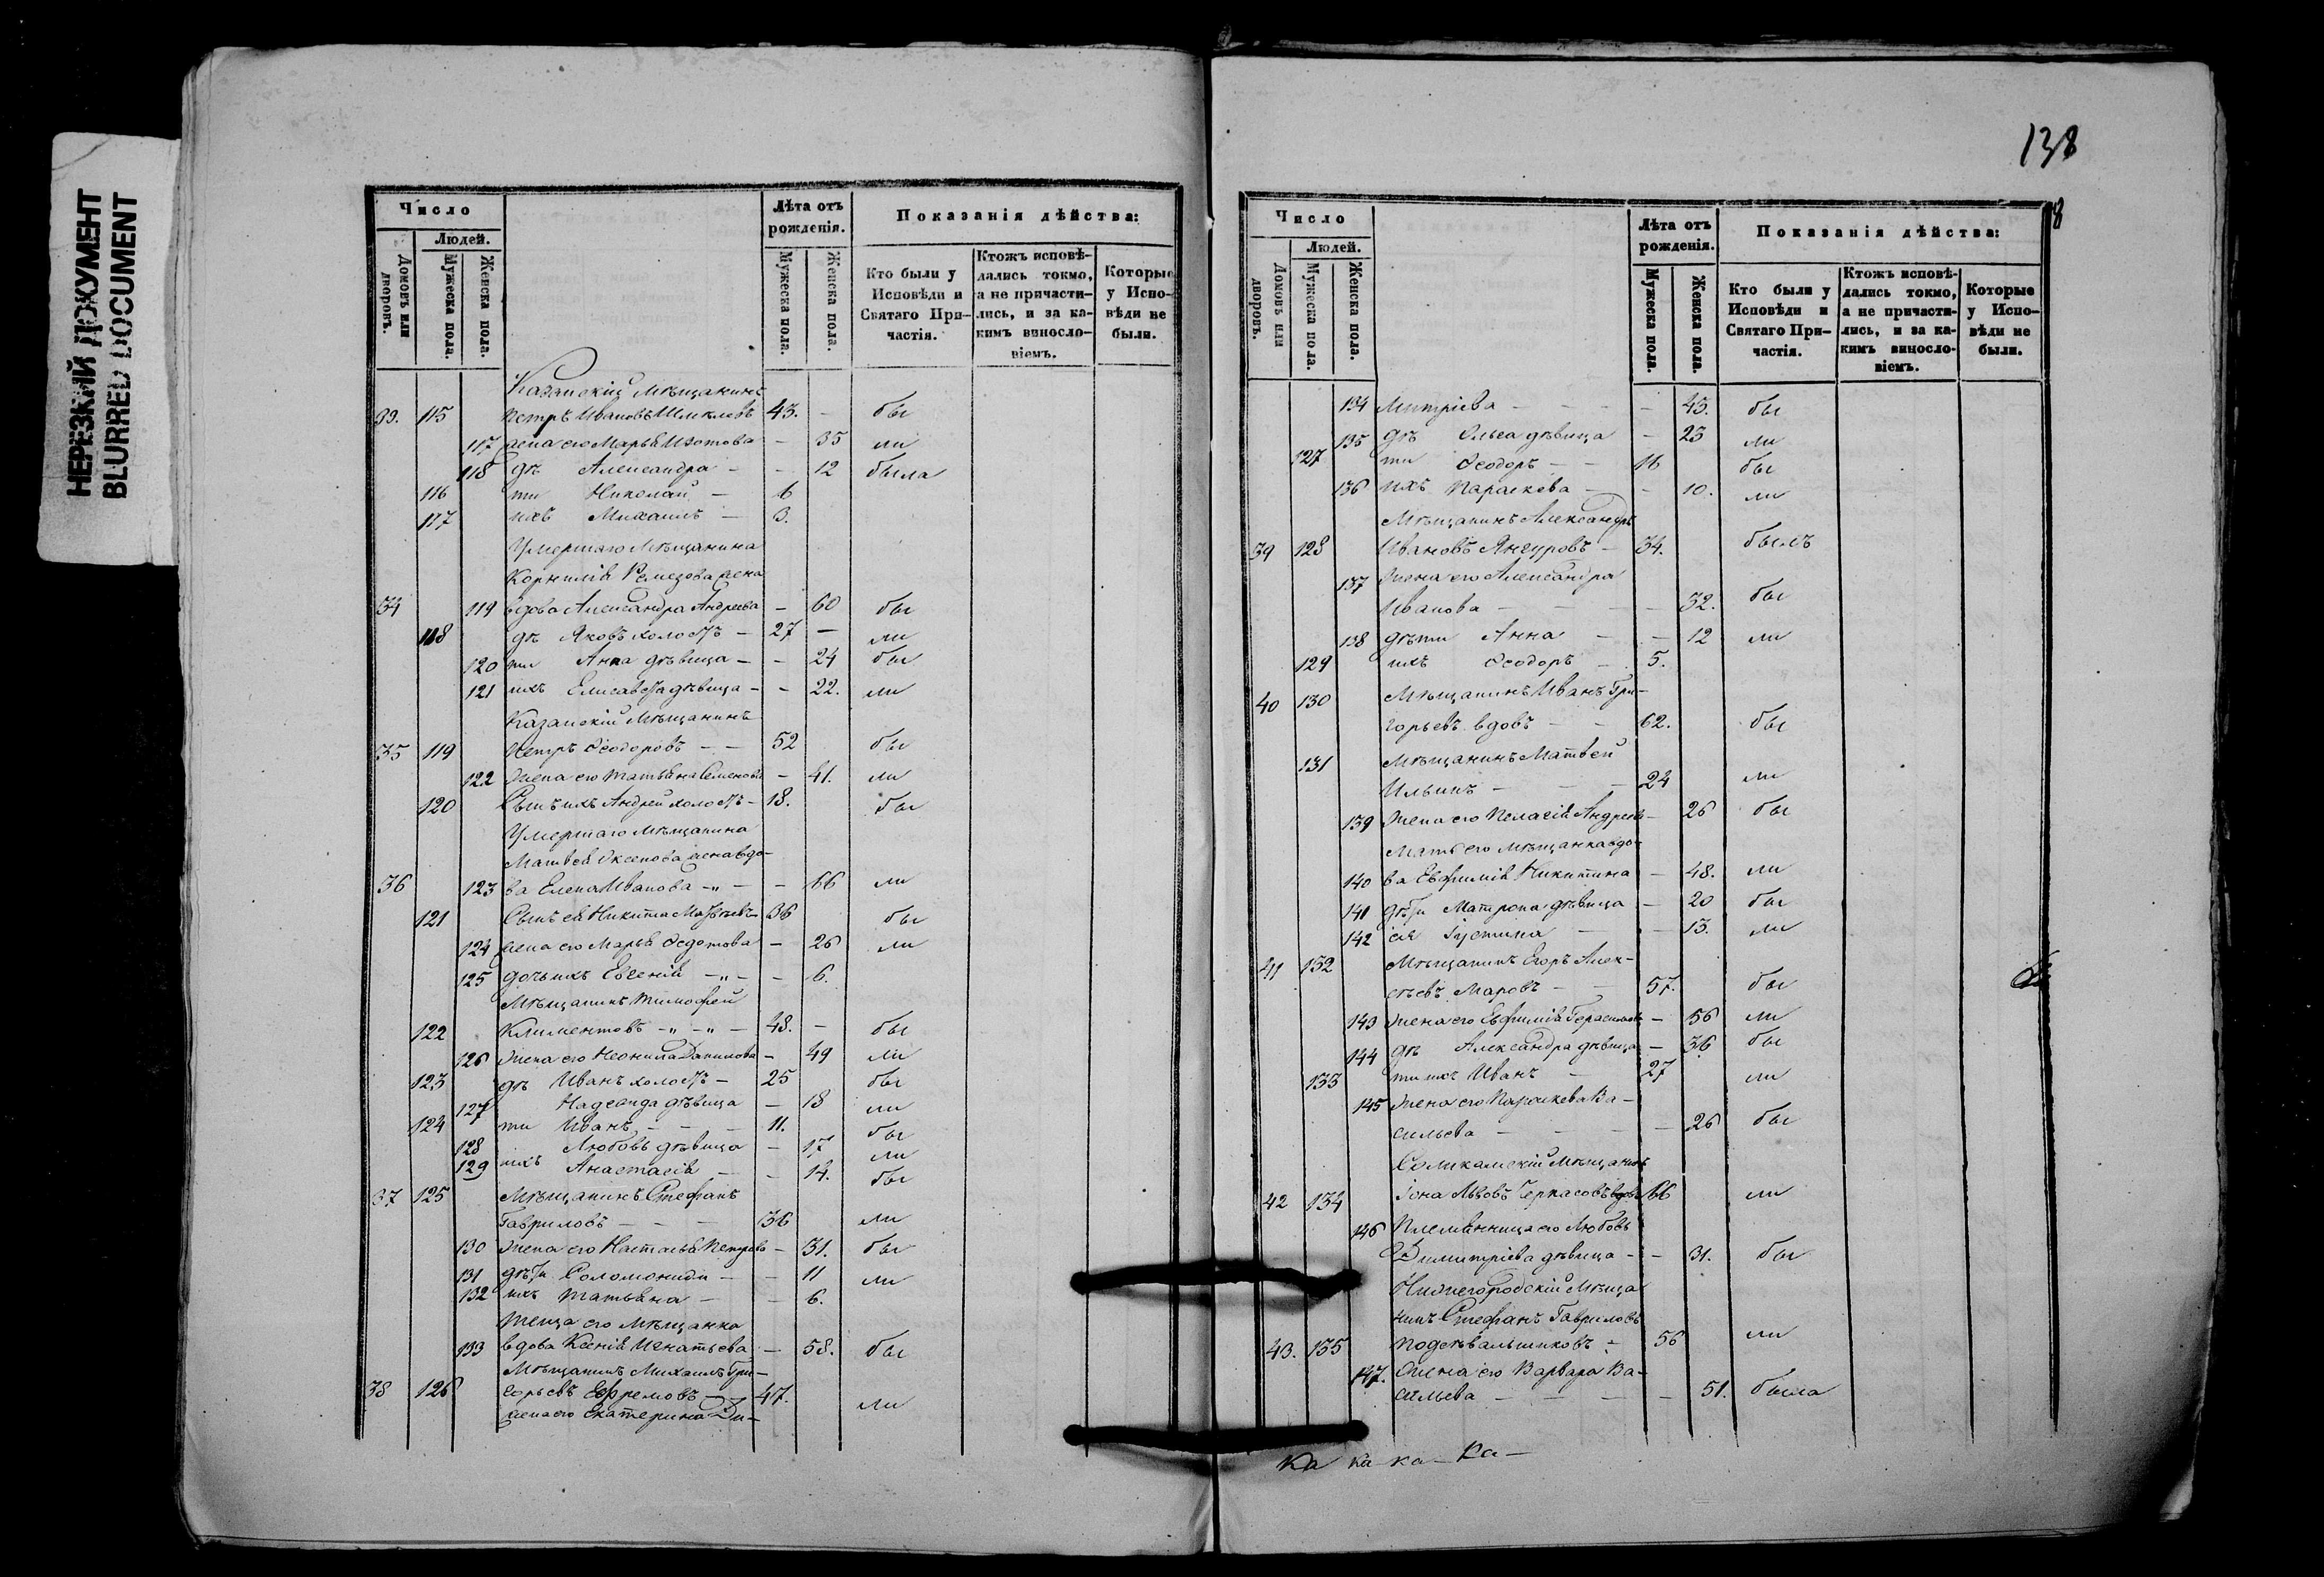 НЕРЕЗКИЙ ДОКУМЕНТ
BLURRED DOCUMENT
Число
Людей.
Домовъ или дворовъ.
Мужеска пола.
Женска пола.
Лѣта отъ рожденія.
Мужеска пола.
Женска пола.
Показанія дѣйства:
Кто были у Исповѣди и Святаго При-частія.
Ктожъ исповѣ-дались токмо, а не причасти-лись, и за ка-кимъ винословіемъ.
Которые у Испо-вѣди не были.
Казанскій Мѣщанинъ
33. 115 Петръ Ивановъ 43. - бы
117 жена его Марья Изотова - 35 ли
118 дѣ Александра - - 12 была
116 ти Николай - 6
117 ихъ Михаилъ - 3.
Умершаго Мѣщанина
Корнилія Ремезова жена
34 119 вдова Александра Андреева - 60 бы
118 дѣ Яковъ холостъ - 27 - ли
120 ти Анна дѣвица - - 24 бы
121 ихъ Елисавета дѣвица - - 22. ли
Казанскій Мѣщанинъ
35 119 Петръ Ѳеодоровъ - - 52 бы
122 жена его Татьяна Семенова - 41. ли
120 Сынъ ихъ Андрей холостъ - 18. бы
Умершаго Мѣщанина
Матвея Аксенова жена вдо-
36 123 ва Елена Иванова - - - 66 ли
121 Сынъ ея Никита Матвѣевъ 36 бы
124 жена его Марья Ѳедотова - 26 ли
125 дочь ихъ Евгенія - - - 6.
Мѣщанинъ Тимофей
122 Климентовъ - - - 48. - бы
126 жена его Неонила Данилова - 49 ли
123 дѣ Иванъ холостъ - 25 бы
127 Надежда дѣвица - 18 ли
124 ти Иванъ - - - 11. бы
128 Любовь дѣвица - 17 ли
129 ихъ Анастасія - - 14. бы
37 125 Мѣщанинъ Стефанъ
Гавриловъ - - - 36 ли
130 жена его Настасья Петрова - 31. бы
131 дѣти Соломонида - - 11 ли
132 ихъ Татьяна - - 6.
Теща его Мѣщанка
133 вдова Ксенія Игнатьева - 58. бы
Мѣщанинъ Михаилъ Гри-
38 126 горьевъ Ефремовъ - 47. ли
жена его Екатерина Ди-
138
8
Число
Людей.
Домовъ или дворовъ.
Мужеска пола.
Женска пола.
Лѣта отъ рожденія.
Мужеска пола.
Женска пола.
Показанія дѣйства:
Кто были у Исповѣди и Святаго При-частія.
Ктожъ исповѣ-дались токмо, а не причасти-лись, и за ка-кимъ винословіемъ.
Которые у Испо-вѣди не были.
134 митріева - - - - 45. бы
135 дѣ Ольга дѣвица - 23 ли
127 ти Ѳеодоръ - - 16 бы
136 ихъ Параскева - - 10. ли
Мѣщанинъ Александръ
39 128 Ивановъ Янгуровъ - 34. былъ
137 Жена его Александра
Иванова - - - - 32. бы
138 дѣти Анна - - 12 ли
129 ихъ Ѳеодоръ - 5.
40 130 Мѣщанинъ Иванъ Гри-
горьевъ вдовъ - - 62. бы
131 Мѣщанинъ Матвей
Ильинъ - - - 24 ли
139 Жена его Пелагія Андреева - 26 бы
Мать его Мѣщанка вдо-
140 ва Евфимія Никитина - 48. ли
141 дѣти Матрона дѣвица - 20 бы
142 ея Іустина - - 13. ли
41 132 Мѣщанинъ Егоръ Алек-
сѣевъ Маровъ - - 57. бы
143 Жена его Евфимія Герасимова - 56 ли
144 дѣ Александра дѣвица - 36 бы
133 ти ихъ Иванъ - 27 ли
145 Жена его Параскева Ва-
сильева - - - - 26 бы
Соликамскій Мѣщанинъ
42 134 Іона Львовъ Черкасовъ вдовъ 66 ли
146 Племянница его Любовь
Димитріева дѣвица - - 31. бы
Нижегородскій Мѣща
нинъ Стефанъ Гавриловъ
43. 135 - 56 ли
147. Жена его Варвара Ва-
сильева - - - - 51. была
Ка ка ка - Ка -